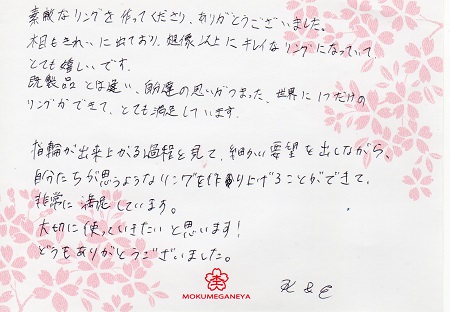 素敵なリングを作ってくださり、ありがとうございました。
木目もきれいに出ており、想像以上にキレイなリングになっていて、
とても嬉しいです。
既製品とは違い、自分達の思いがつまった、世界に1つだけの
リングができて、とても満足しています。
指輪が出来上がる過程を見て、細かい要望を出しながら、
自分たちが思うようなリングを作り上げることができて、
非常に満足しています。
大切に使っていきたいと思います!
どうもありがとうございました。
K & E
MOKUMEGANEYA